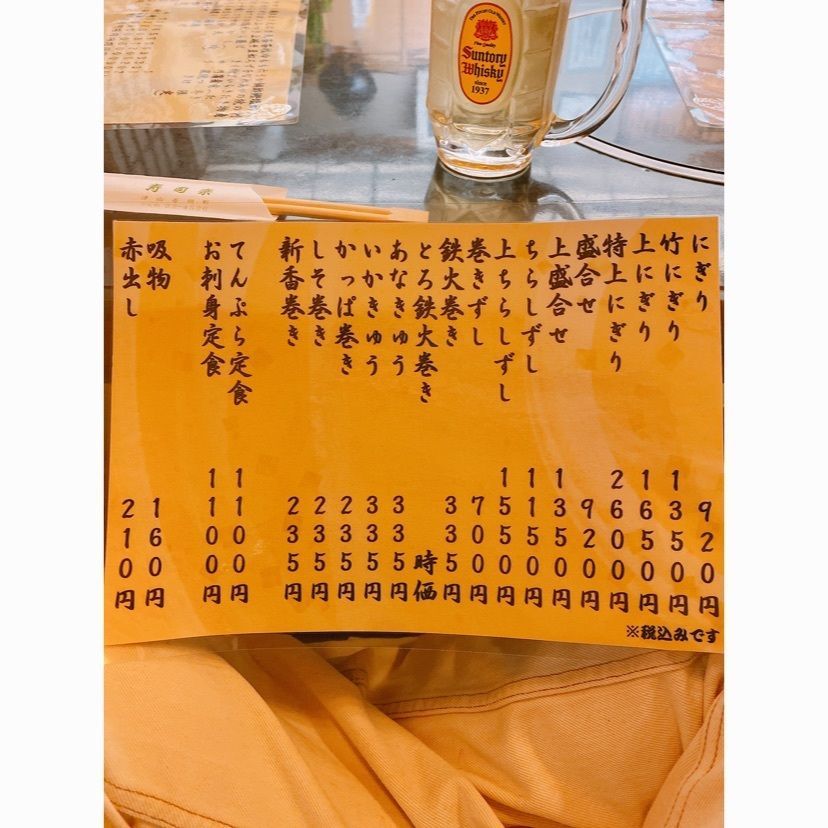 Suntory
Whisky
since
1937
にぎり 920円
竹にぎり 1350円
上にぎり 1650円
特上にぎり 2600円
盛合せ 920円
上盛合せ 1350円
ちらしずし 1150円
上ちらしずし 1550円
巻きずし 700円
鉄火巻き 335円
とろ鉄火巻き 時価
あなきゅう 335円
いかきゅう 335円
かっぱ巻き 235円
しそ巻き 235円
新香巻き 235円
てんぷら定食 1100円
お刺身定食 1100円
吸物 160円
赤出し 210円
※税込みです